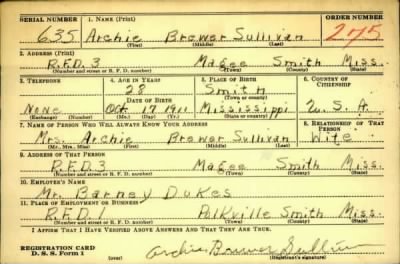 SERIAL NUMBER 1. NAME (Print) ORDER NUMBER
635 Archie Brewer Sullivan 275
(First) (Middle) (Last)
2. ADDRESS (Print)
R.F.D. 3 Magee Smith Miss.
(Number and street or R. F. D. number) (Town) (County) (State)
3. TELEPHONE 4. AGE IN YEARS 5. PLACE OF BIRTH 6. COUNTRY OF CITIZENSHIP
28 Smith
DATE OF BIRTH (Town or county)
None Oct. 17 1911 Mississippi U.S.A.
(Exchange) (Number) (Mo.) (Day) (Yr.) (State or country)
7. NAME OF PERSON WHO WILL ALWAYS KNOW YOUR ADDRESS 8. RELATIONSHIP OF THAT PERSON
Mrs. Archie Brewer Sullivan Wife
(Mr., Mrs., Miss) (First) (Middle) (Last)
9. ADDRESS OF THAT PERSON
R.F.D. 3 Magee Smith Miss.
(Number and street or R. F. D. number) (Town) (County) (State)
10. EMPLOYER'S NAME
Mr. Barney Dukes
11. PLACE OF EMPLOYMENT OR BUSINESS
R.F.D. 1 Polkville Smith Miss.
(Number and street or R. F. D. number) (Town) (County) (State)
I AFFIRM THAT I HAVE VERIFIED ABOVE ANSWERS AND THAT THEY ARE TRUE.
REGISTRATION CARD
D. S. S. Form 1 (over) Archie Brewer Sullivan
(Registrant's signature)